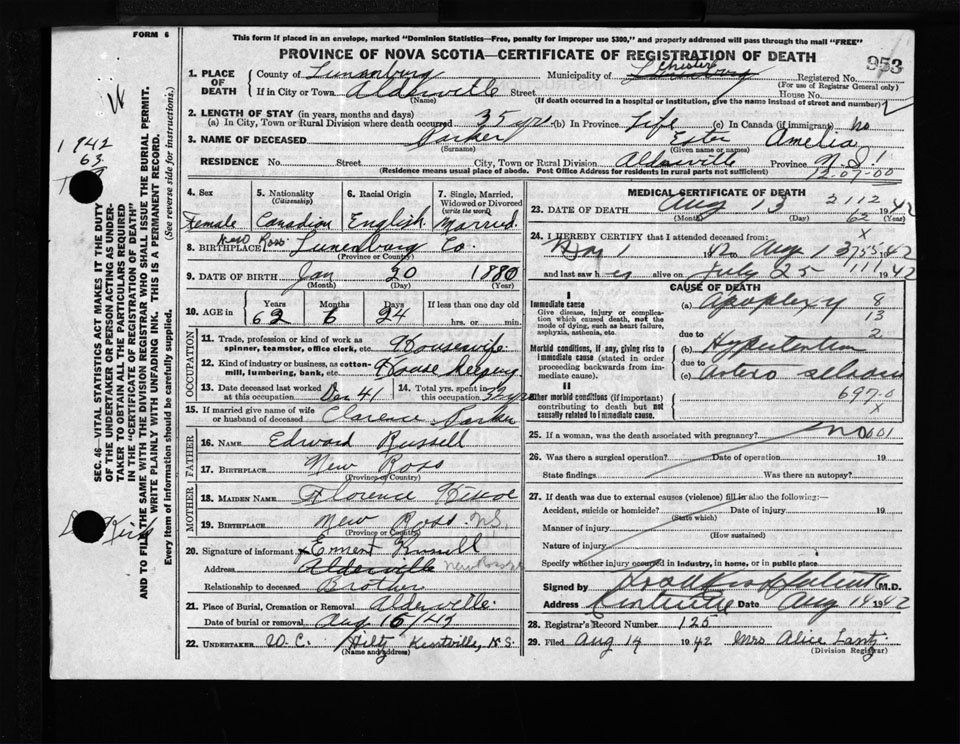 FORM 6
This form if placed in an envelope, marked "Dominion Statistics—Free, penalty for improper use $300," and properly addressed will pass through the mail "FREE"
PROVINCE OF NOVA SCOTIA—CERTIFICATE OF REGISTRATION OF DEATH
953
1. PLACE OF DEATH
County of Lunenburg Municipality of Lunenburg Chester Registered No.
(For use of Registrar General only)
If in City or Town Aldersville Street House No.
(Name) (If death occurred in a hospital or institution, give the name instead of street and number)
2. LENGTH OF STAY (in years, months and days)
(a) In City, Town or Rural Division where death occurred 35 yrs (b) In Province Life (c) In Canada (if immigrant) no
3. NAME OF DECEASED Ester Amelia
(Surname) (Given name or names)
RESIDENCE No. Street City, Town or Rural Division Aldersville Province N.S.
(Residence means usual place of abode. Post Office Address for residents in rural parts not sufficient) 12-07-00
4. Sex Female
5. Nationality (Citizenship) Canadian
6. Racial Origin English
7. Single, Married, Widowed or Divorced (write the word) Married
8. BIRTHPLACE New Ross Lunenburg Co.
(Province or Country)
9. DATE OF BIRTH Jan 20 1880
(Month) (Day) (Year)
10. AGE in Years Months Days If less than one day
62 6 24 hrs. or min.
OCCUPATION
11. Trade, profession or kind of work as spinner, teamster, office clerk, etc. Housewife
12. Kind of industry or business, as cotton-mill, lumbering, bank, etc. House Keeping
13. Date deceased last worked at this occupation Dec 41
14. Total yrs. spent in this occupation
15. If married give name of wife or husband of deceased Clarence
FATHER
16. NAME Edward Russell
17. BIRTHPLACE New Ross
(Province or Country)
MOTHER
18. MAIDEN NAME Florence
19. BIRTHPLACE New Ross N.S.
(Province or Country)
20. Signature of informant Russell
Address Aldersville
Relationship to deceased Brother
21. Place of Burial, Cremation or Removal Aldersville
Date of burial or removal Aug
22. UNDERTAKER W. C. Hiltz Kentville, N.S.
(Name and address)
MEDICAL CERTIFICATE OF DEATH
23. DATE OF DEATH Aug 13 1942
(Month) (Day) (Year)
2112
62
24. I HEREBY CERTIFY that I attended deceased from:
1942 Aug 13 1942
and last saw h alive on July 25 1942
CAUSE OF DEATH
I
Immediate cause
Give disease, injury or complication which caused death, not the mode of dying, such as heart failure, asphyxia, asthenia, etc.
(a) Apoplexy
8
13
2
due to
Morbid conditions, if any, giving rise to immediate cause (stated in order proceeding backwards from immediate cause).
(b) Hypertention
due to
(c) arterio
II
Other morbid conditions (if important) contributing to death but not causally related to immediate cause.
697-0
X
25. If a woman, was the death associated with pregnancy? no
26. Was there a surgical operation? Date of operation 19
State findings Was there an autopsy?
27. If death was due to external causes (violence) fill in also the following:—
Accident, suicide or homicide? Date of injury 19
(State which)
Manner of injury
(How sustained)
Nature of injury
Specify whether injury occurred in industry, in home, or in public place
Signed by M.D.
Address Kentville Date Aug 14 1942
28. Registrar's Record Number 125
29. Filed Aug 14 1942 Mrs Alice Lantz
(Division Registrar)
SEC. 46—VITAL STATISTICS ACT MAKES IT THE DUTY
OF THE UNDERTAKER OR PERSON ACTING AS UNDER-
TAKER TO OBTAIN ALL THE PARTICULARS REQUIRED
IN THE "CERTIFICATE OF REGISTRATION OF DEATH"
AND TO FILE THE SAME WITH THE DIVISION REGISTRAR WHO SHALL ISSUE THE BURIAL PERMIT.
WRITE PLAINLY WITH UNFADING INK. THIS IS A PERMANENT RECORD.
Every item of information should be carefully supplied. (See reverse side for instructions.)
1942
63